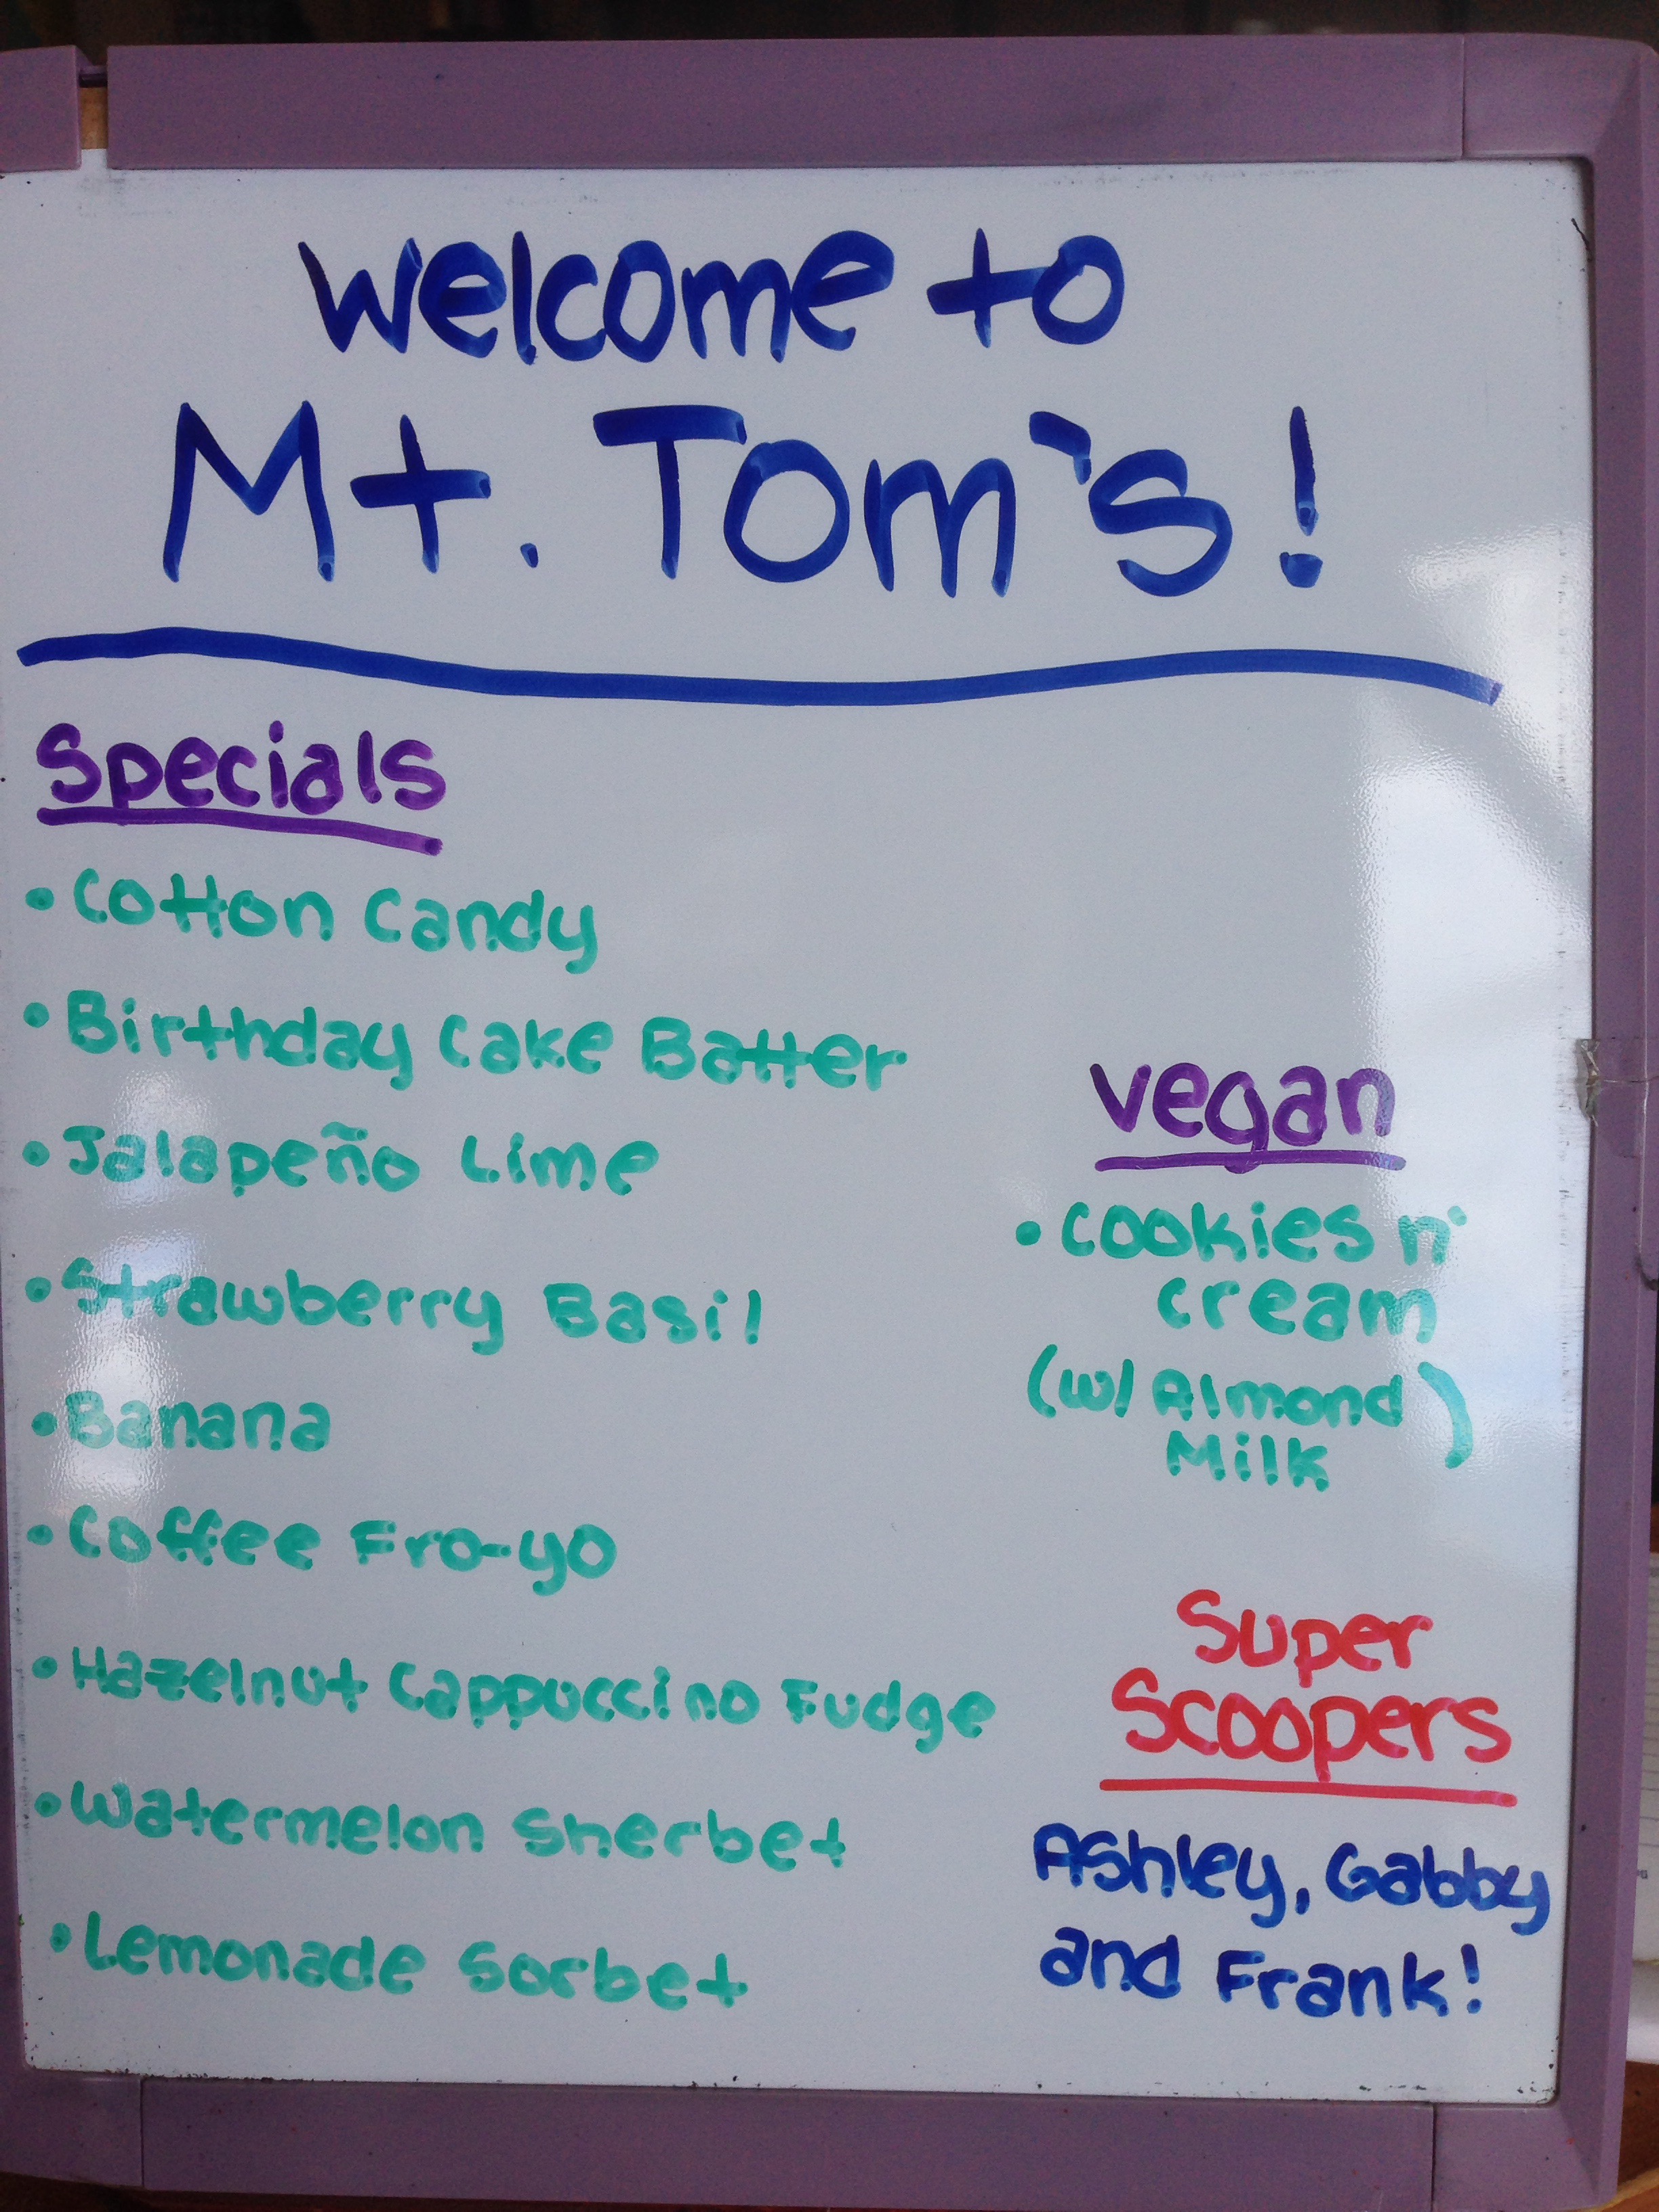 Welcome to
Mt. Tom's!
Specials
• Cotton Candy
• Birthday Cake Batter
• Jalapeño Lime
• Strawberry Basil
• Banana
• Coffee Fro-yo
• Hazelnut Cappuccino Fudge
• Watermelon Sherbet
• Lemonade Sorbet
Vegan
• Cookies n'
cream
(w/ Almond
Milk)
Super
Scoopers
Ashley, Gabby
and Frank!